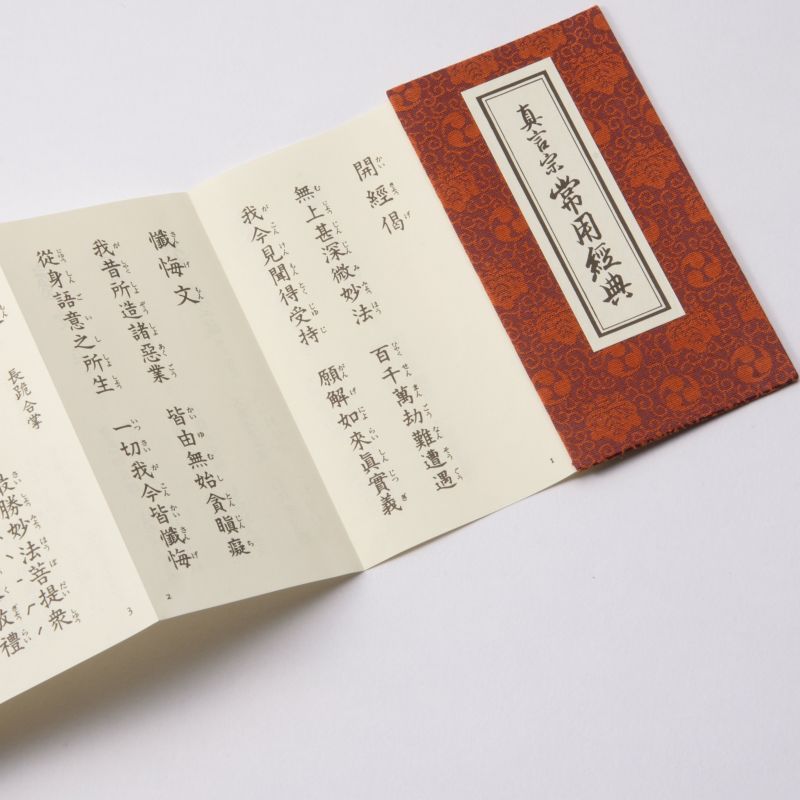 真言宗常用經典
開經偈
無上甚深微妙法 百千萬劫難遭遇
我今見聞得受持 願解如來眞實義
1
懺悔文
我昔所造諸惡業 皆由無始貪瞋癡
從身語意之所生 一切我今皆懺悔
2
長跪合掌
最勝妙法菩提衆
禮
3